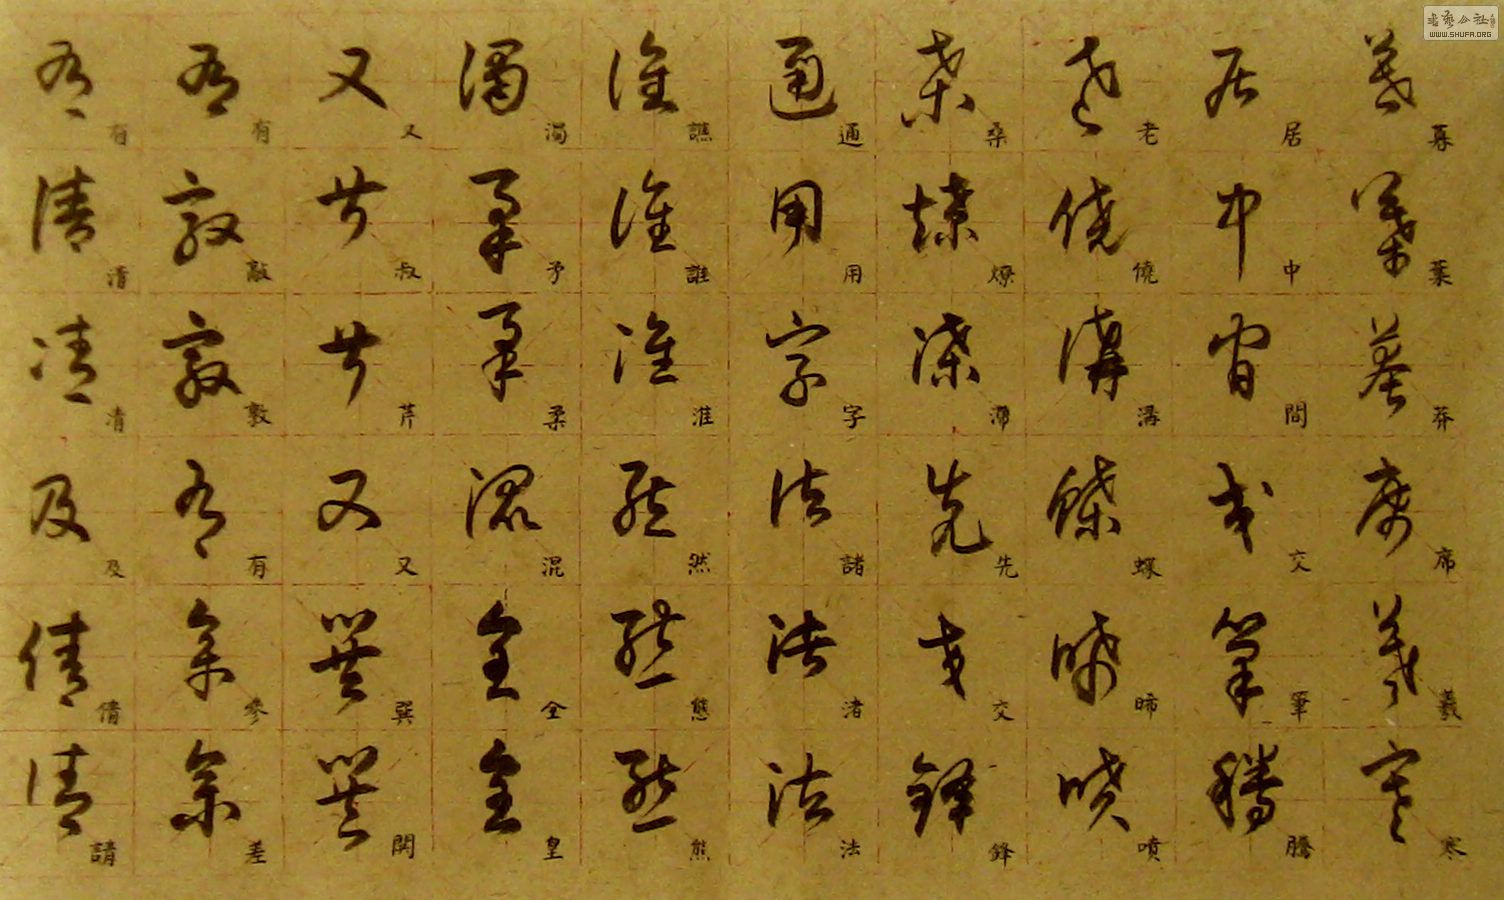 书艺公社
WWW.SHUFA.ORG
葉 莽 席 羲 寒
居 中 間 交 筆 騰
老 僥 溝 蝶 晞 噴
桑 燎 滯 先 交 鋒
通 用 字 諸 渚 法
譙 誰 淮 然 態 熊
濁 予 柔 混 全 皇
又 叔 芹 又 巽 閧
有 敲 敦 有 參 差
有 清 清 及 倩 請